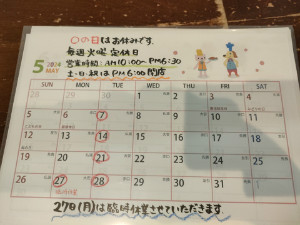 〇の日はお休みです。
毎週火曜 定休日
営業時間:AM10:00~PM6:30
土・日・祝はPM6:00閉店
5 2024
MAY
SUN MON TUE WED THU FRI SAT
28 29 30 1 2 3 4
5 6 7 8 9 10 11
12 13 14 15 16 17 18
19 20 21 22 23 24 25
26 27 28 29 30 31 1
27日(月)は臨時休業させていただきます。